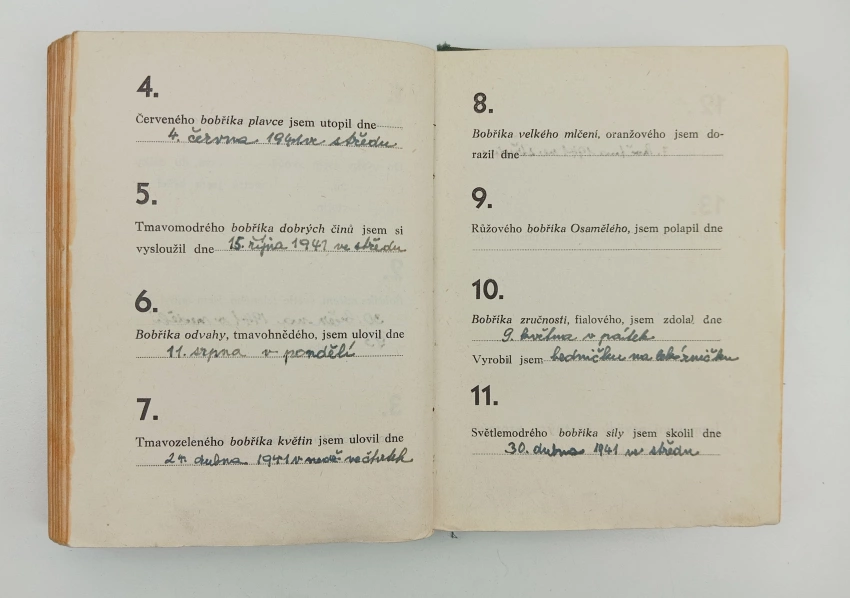 4.
Červeného bobříka plavce jsem utopil dne
4. června 1941 ve středu
5.
Tmavomodrého bobříka dobrých činů jsem si
vysloužil dne 15. října 1941 ve středu
6.
Bobříka odvahy, tmavohnědého, jsem ulovil dne
11. srpna v pondělí
7.
Tmavozeleného bobříka květin jsem ulovil dne
24. dubna 1941 v ve čtvrtek
8.
Bobříka velkého mlčení, oranžového jsem do-
razil dne
9.
Růžového bobříka Osamělého, jsem polapil dne
10.
Bobříka zručnosti, fialového, jsem zdolal dne
9. května v pátek
Vyrobil jsem bedničku na lékárničku
11.
Světlemodrého bobříka síly jsem skolil dne
30. dubna 1941 ve středu